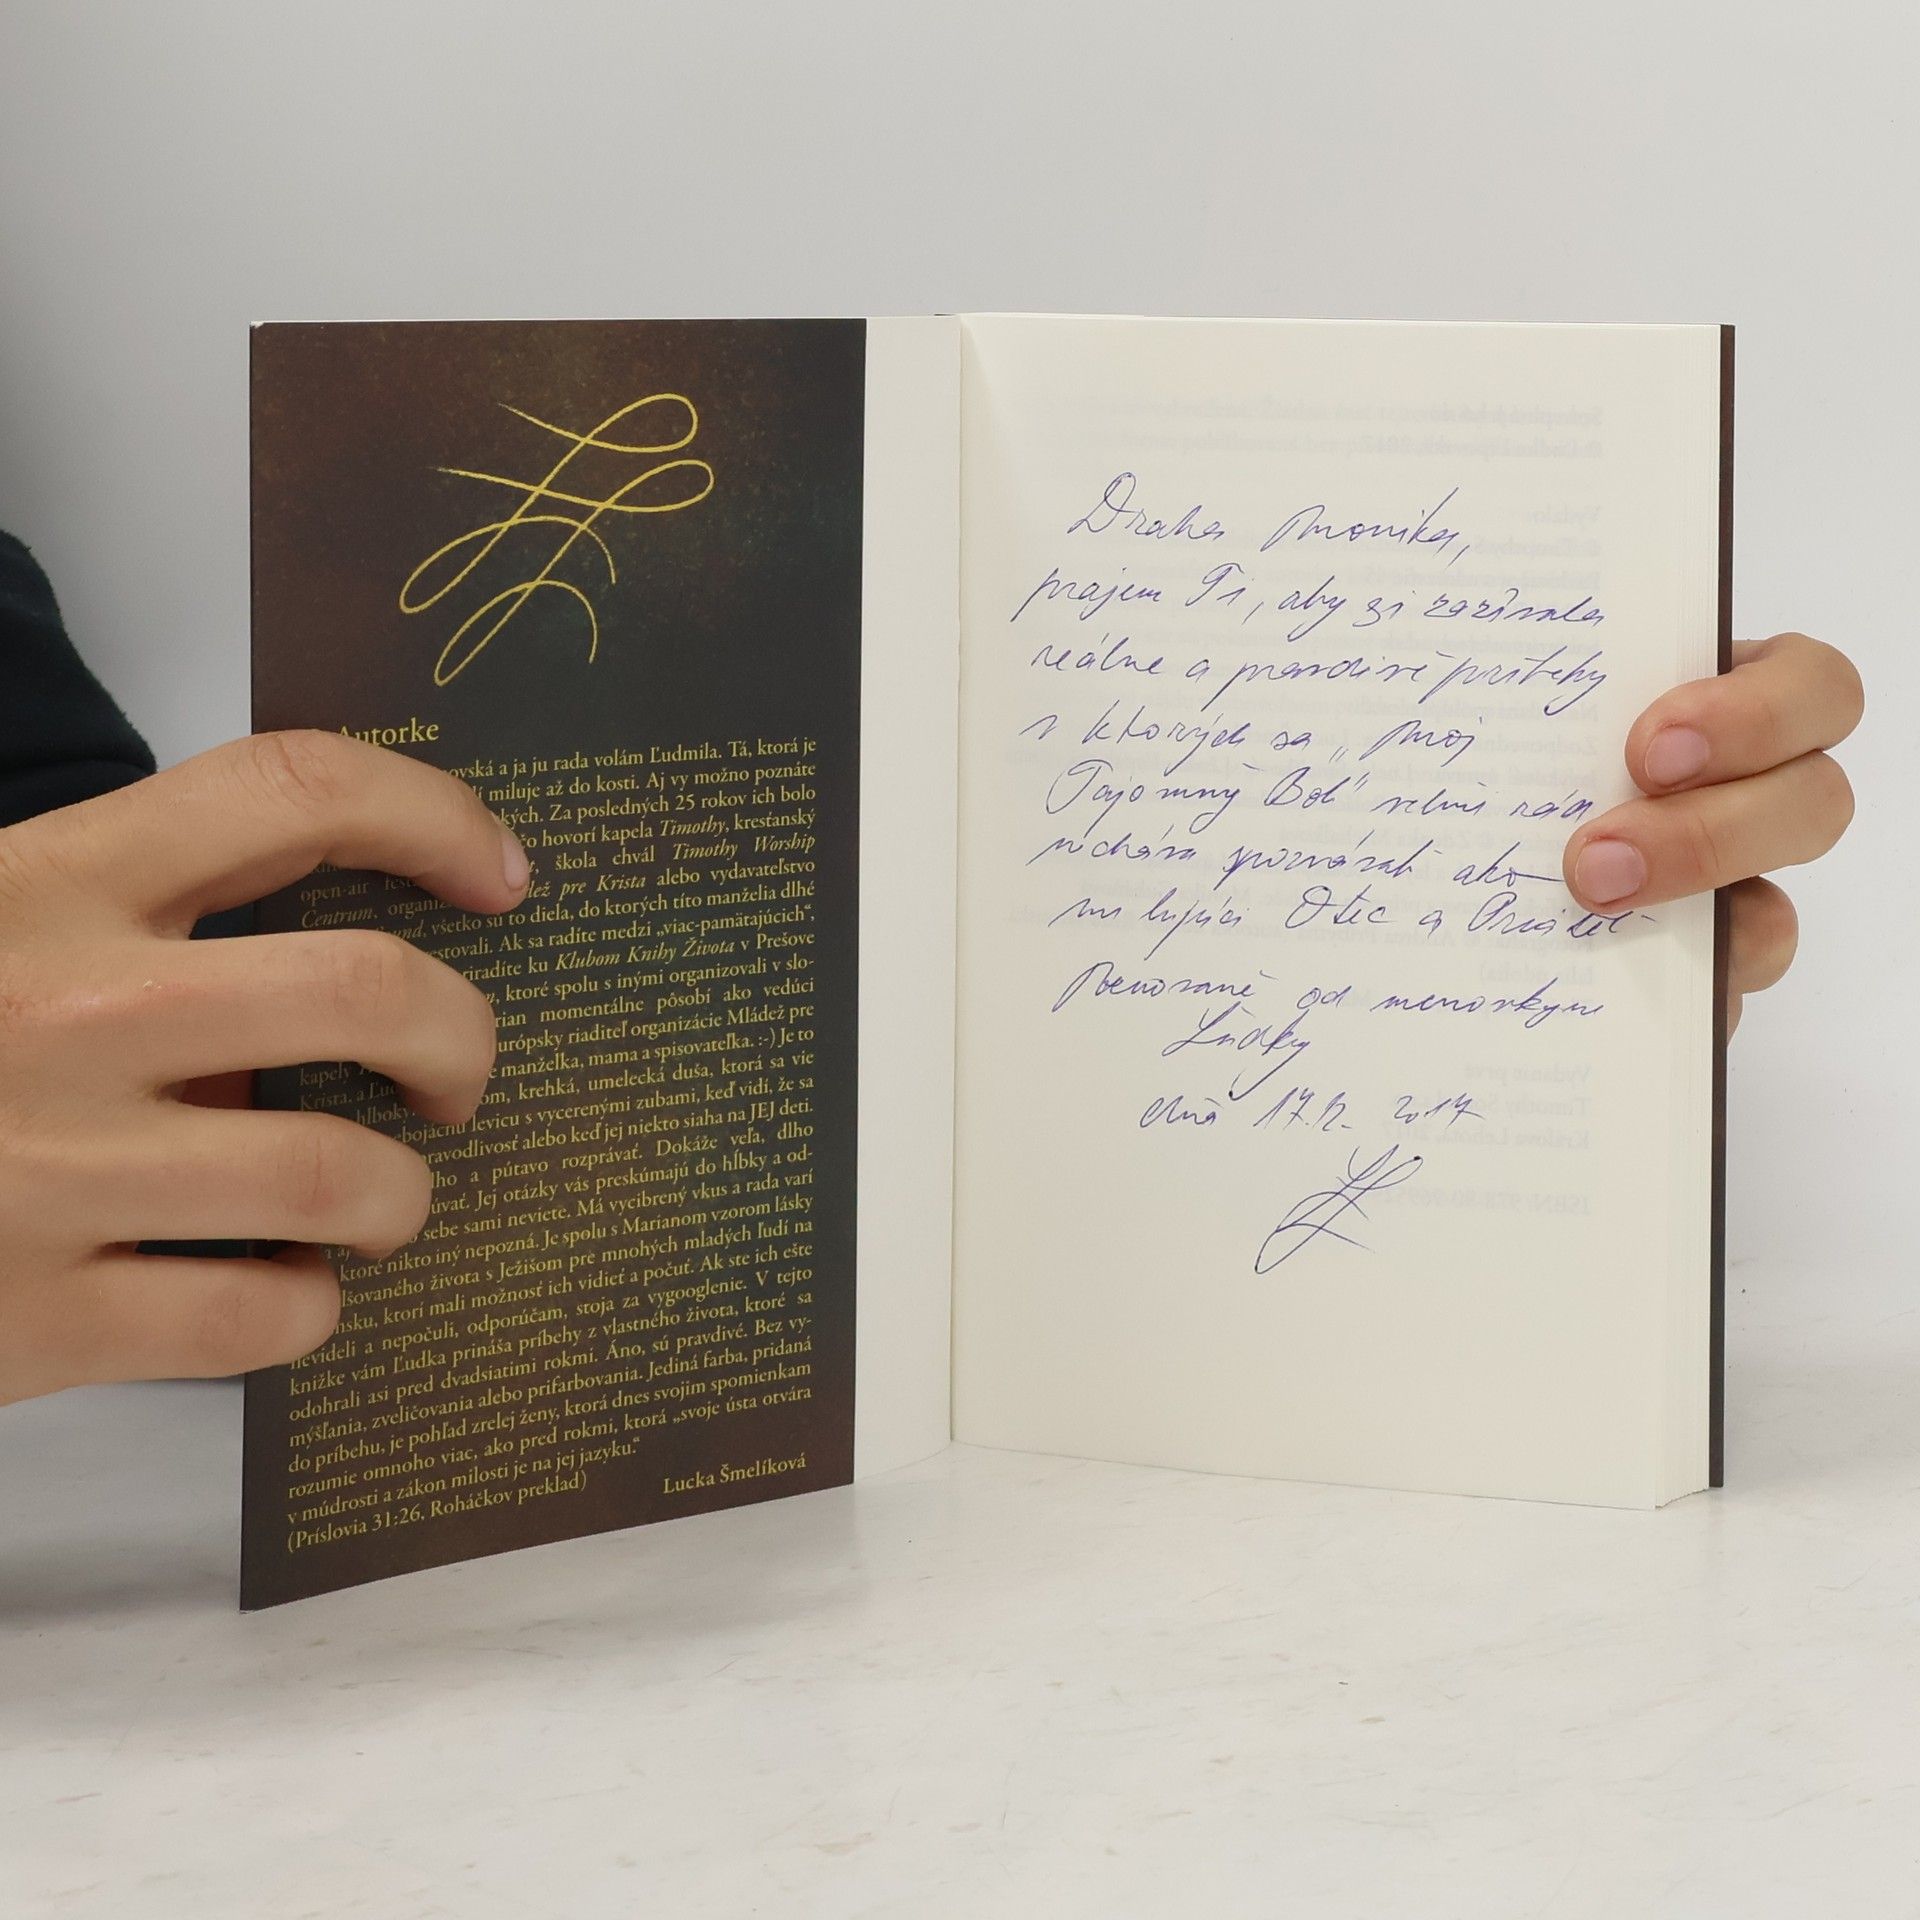 Autorke
ovská a ja ju rada volám Ľudmila. Tá, ktorá je
miluje až do kosti. Aj vy možno poznáte
kých. Za posledných 25 rokov ich bolo
čo hovorí kapela Timothy, kresťanský
škola chvál Timothy Worship
open-air pre Krista alebo vydavateľstvo
Centrum, všetko sú to diela, do ktorých títo manželia dlhé
estovali. Ak sa radíte medzi „viac-pamätajúcich“,
riradíte ku Klubom Knihy Života v Prešove
ktoré spolu s inými organizovali v slo-
rian momentálne pôsobí ako vedúci
kapely urópsky riaditeľ organizácie Mládež pre
Krista, a manželka, mama a spisovateľka. :-) Je to
om, krehká, umelecká duša, ktorá sa vie
ebojácnu levicu s vycerenými zubami, keď vidí, že sa
ravodlivosť alebo keď jej niekto siaha na JEJ deti.
lho a pútavo rozprávať. Dokáže veľa, dlho
úvať. Jej otázky vás preskúmajú do hĺbky a od-
sebe sami neviete. Má vycibrený vkus a rada varí
ktoré nikto iný nepozná. Je spolu s Marianom vzorom lásky
lšovaného života s Ježišom pre mnohých mladých ľudí na
nsku, ktorí mali možnosť ich vidieť a počuť. Ak ste ich ešte
nevideli a nepočuli, odporúčam, stoja za vygooglenie. V tejto
knižke vám Ľudka prináša príbehy z vlastného života, ktoré sa
odohrali asi pred dvadsiatimi rokmi. Áno, sú pravdivé. Bez vy-
mýšľania, zveličovania alebo prifarbovania. Jediná farba, pridaná
do príbehu, je pohľad zrelej ženy, ktorá dnes svojim spomienkam
rozumie omnoho viac, ako pred rokmi, ktorá „svoje ústa otvára
v múdrosti a zákon milosti je na jej jazyku.“
(Príslovia 31:26, Roháčkov preklad)
Lucka Šmelíková
Drahá Monika,
prajem Ti, aby si zažívala
reálne a pravdivé príbehy
v ktorých sa „Môj
Tajomný Boh“ veľmi rád
necháva spoznávať ako
milujúci Otec a Priateľ
Venované od menovkyne
Ľudky
dňa 17.12. 2017